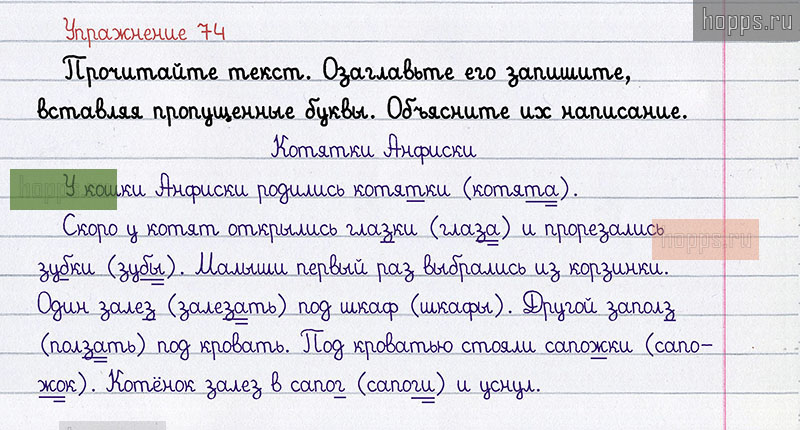 hopps.ru
Упражнение 74
Прочитайте текст. Озаглавьте его запишите,
вставляя пропущенные буквы. Объясните их написание.
Котятки Анфиски
У кошки Анфиски родились котятки (котята).
Скоро у котят открылись глазки (глаза) и прорезались
hopps.ru
зубки (зубы). Малыши первый раз выбрались из корзинки.
Один залез (залезать) под шкаф (шкафы). Другой заполз
(ползать) под кровать. Под кроватью стояли сапожки (сапо-
жок). Котёнок залез в сапог (сапоги) и уснул.